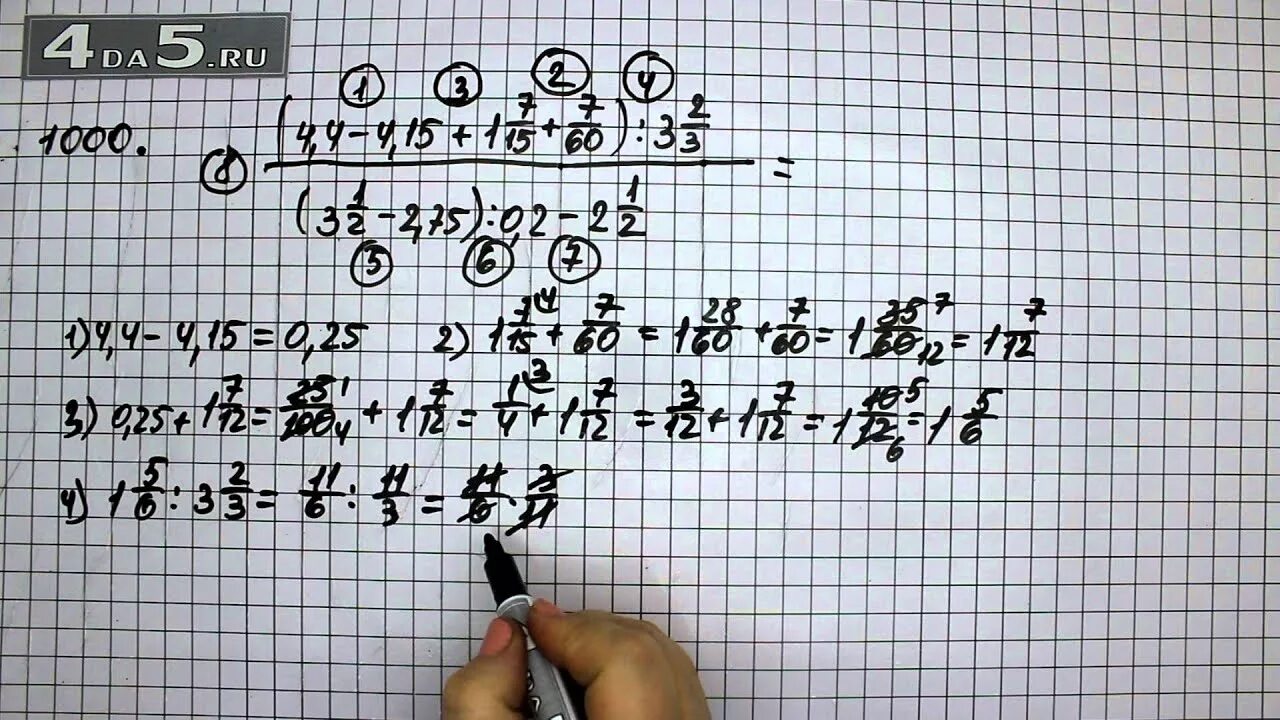 4 DA 5.RU
① ③ ② ④
1000. ⑧ (4,4 − 4,15 + 1 7/15 + 7/60) : 3 2/3 =
(3 1/2 − 2,75) : 0,2 − 2 1/2
⑤ ⑥ ⑦
1) 4,4 − 4,15 = 0,25 2) 1 7/15 (4 + 7/60 = 1 28/60 + 7/60 = 1 35/60 7 12 = 1 7/12
3) 0,25 + 1 7/12 = 25/100 1 4 + 1 7/12 = 1/4 (3 + 1 7/12 = 3/12 + 1 7/12 = 1 10/12 5 6 = 1 5/6
4) 1 5/6 : 3 2/3 = 11/6 : 11/3 = 11/6 · 3/11